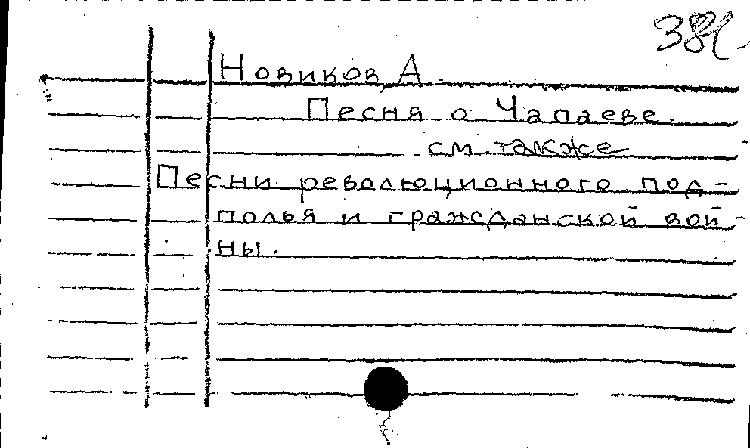 Новиков А.
Песня о Чапаеве.
см. также
Песни революционного под-
полья и гражданской вой-
ны.